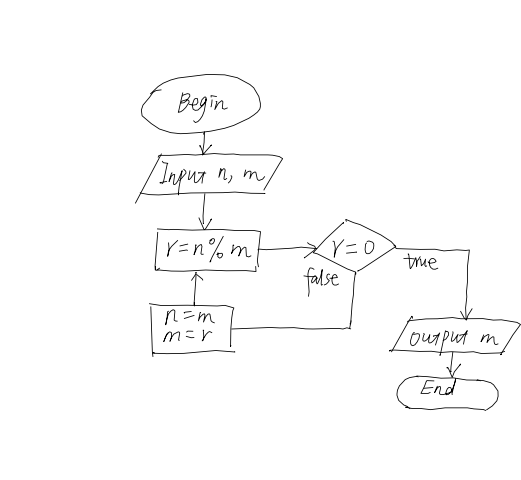 Begin
Input n, m
r=n%m
r=0
true
false
n=m
m=r
output m
End